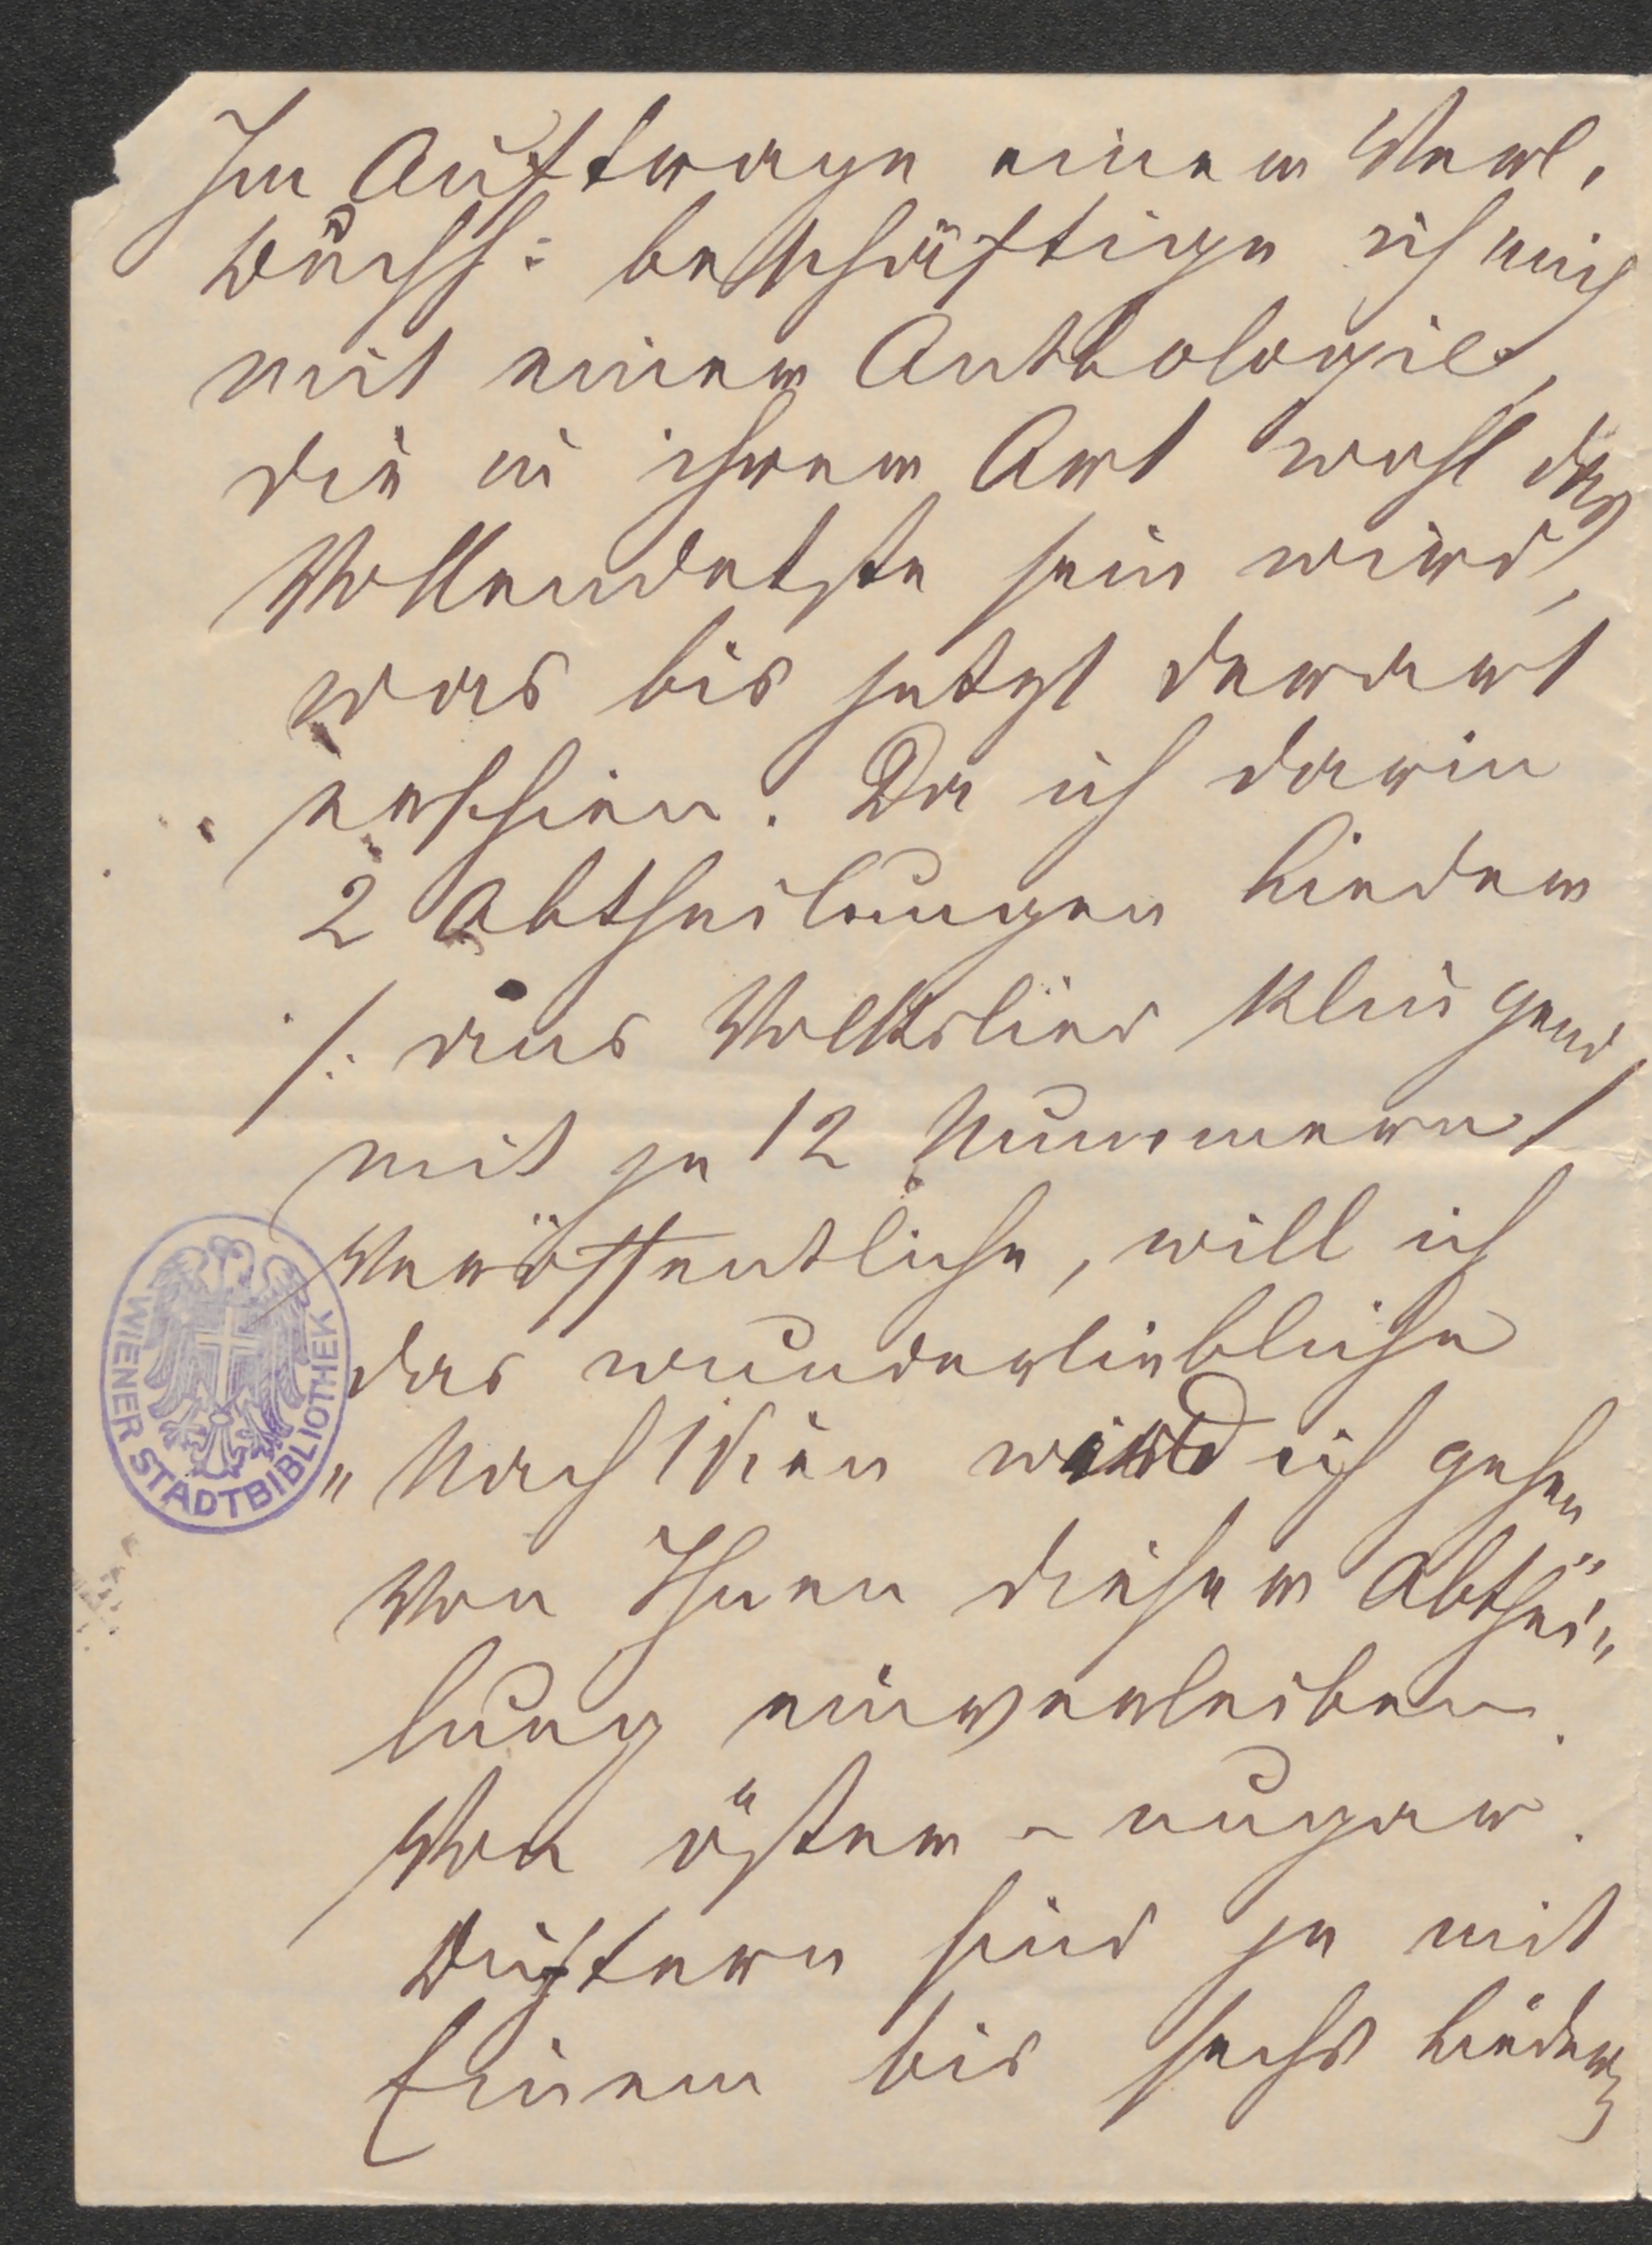 Im Auftrage einer Verl.
Buchh: beschäftige ich mich
mit einer Anthologie,
die in ihrer Art wohl das
Vollendetste sein wird,
was bis jetzt derart
erschien. Da ich darin
2 Abtheilungen Lieder
/: ans Volkslied klingend
mit je 12 Nummern/
veröffentliche, will ich
das wunderliebliche
"Nach Wien ich gehen"
von Ihnen dieser Abthei"
lung einverleiben.
Von öster-ungar.
Dichtern sind je mit
Einem bis sechs Liedern
WIENER STADTBIBLIOTHEK